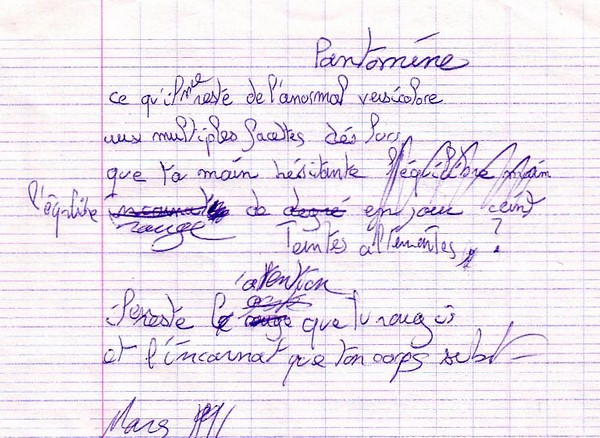 Pantomine
ce qu'il me reste de l'anormal versicolore
aux multiples facettes dés lors
que ta main hésitante l'équilibre main
l'équilibre incarnat de degré en jour ceint
rouge ?
Teintes alternantes
l'atention
Il reste le rouge que tu rougis
et l'incarnat que ton corps subit
Mars